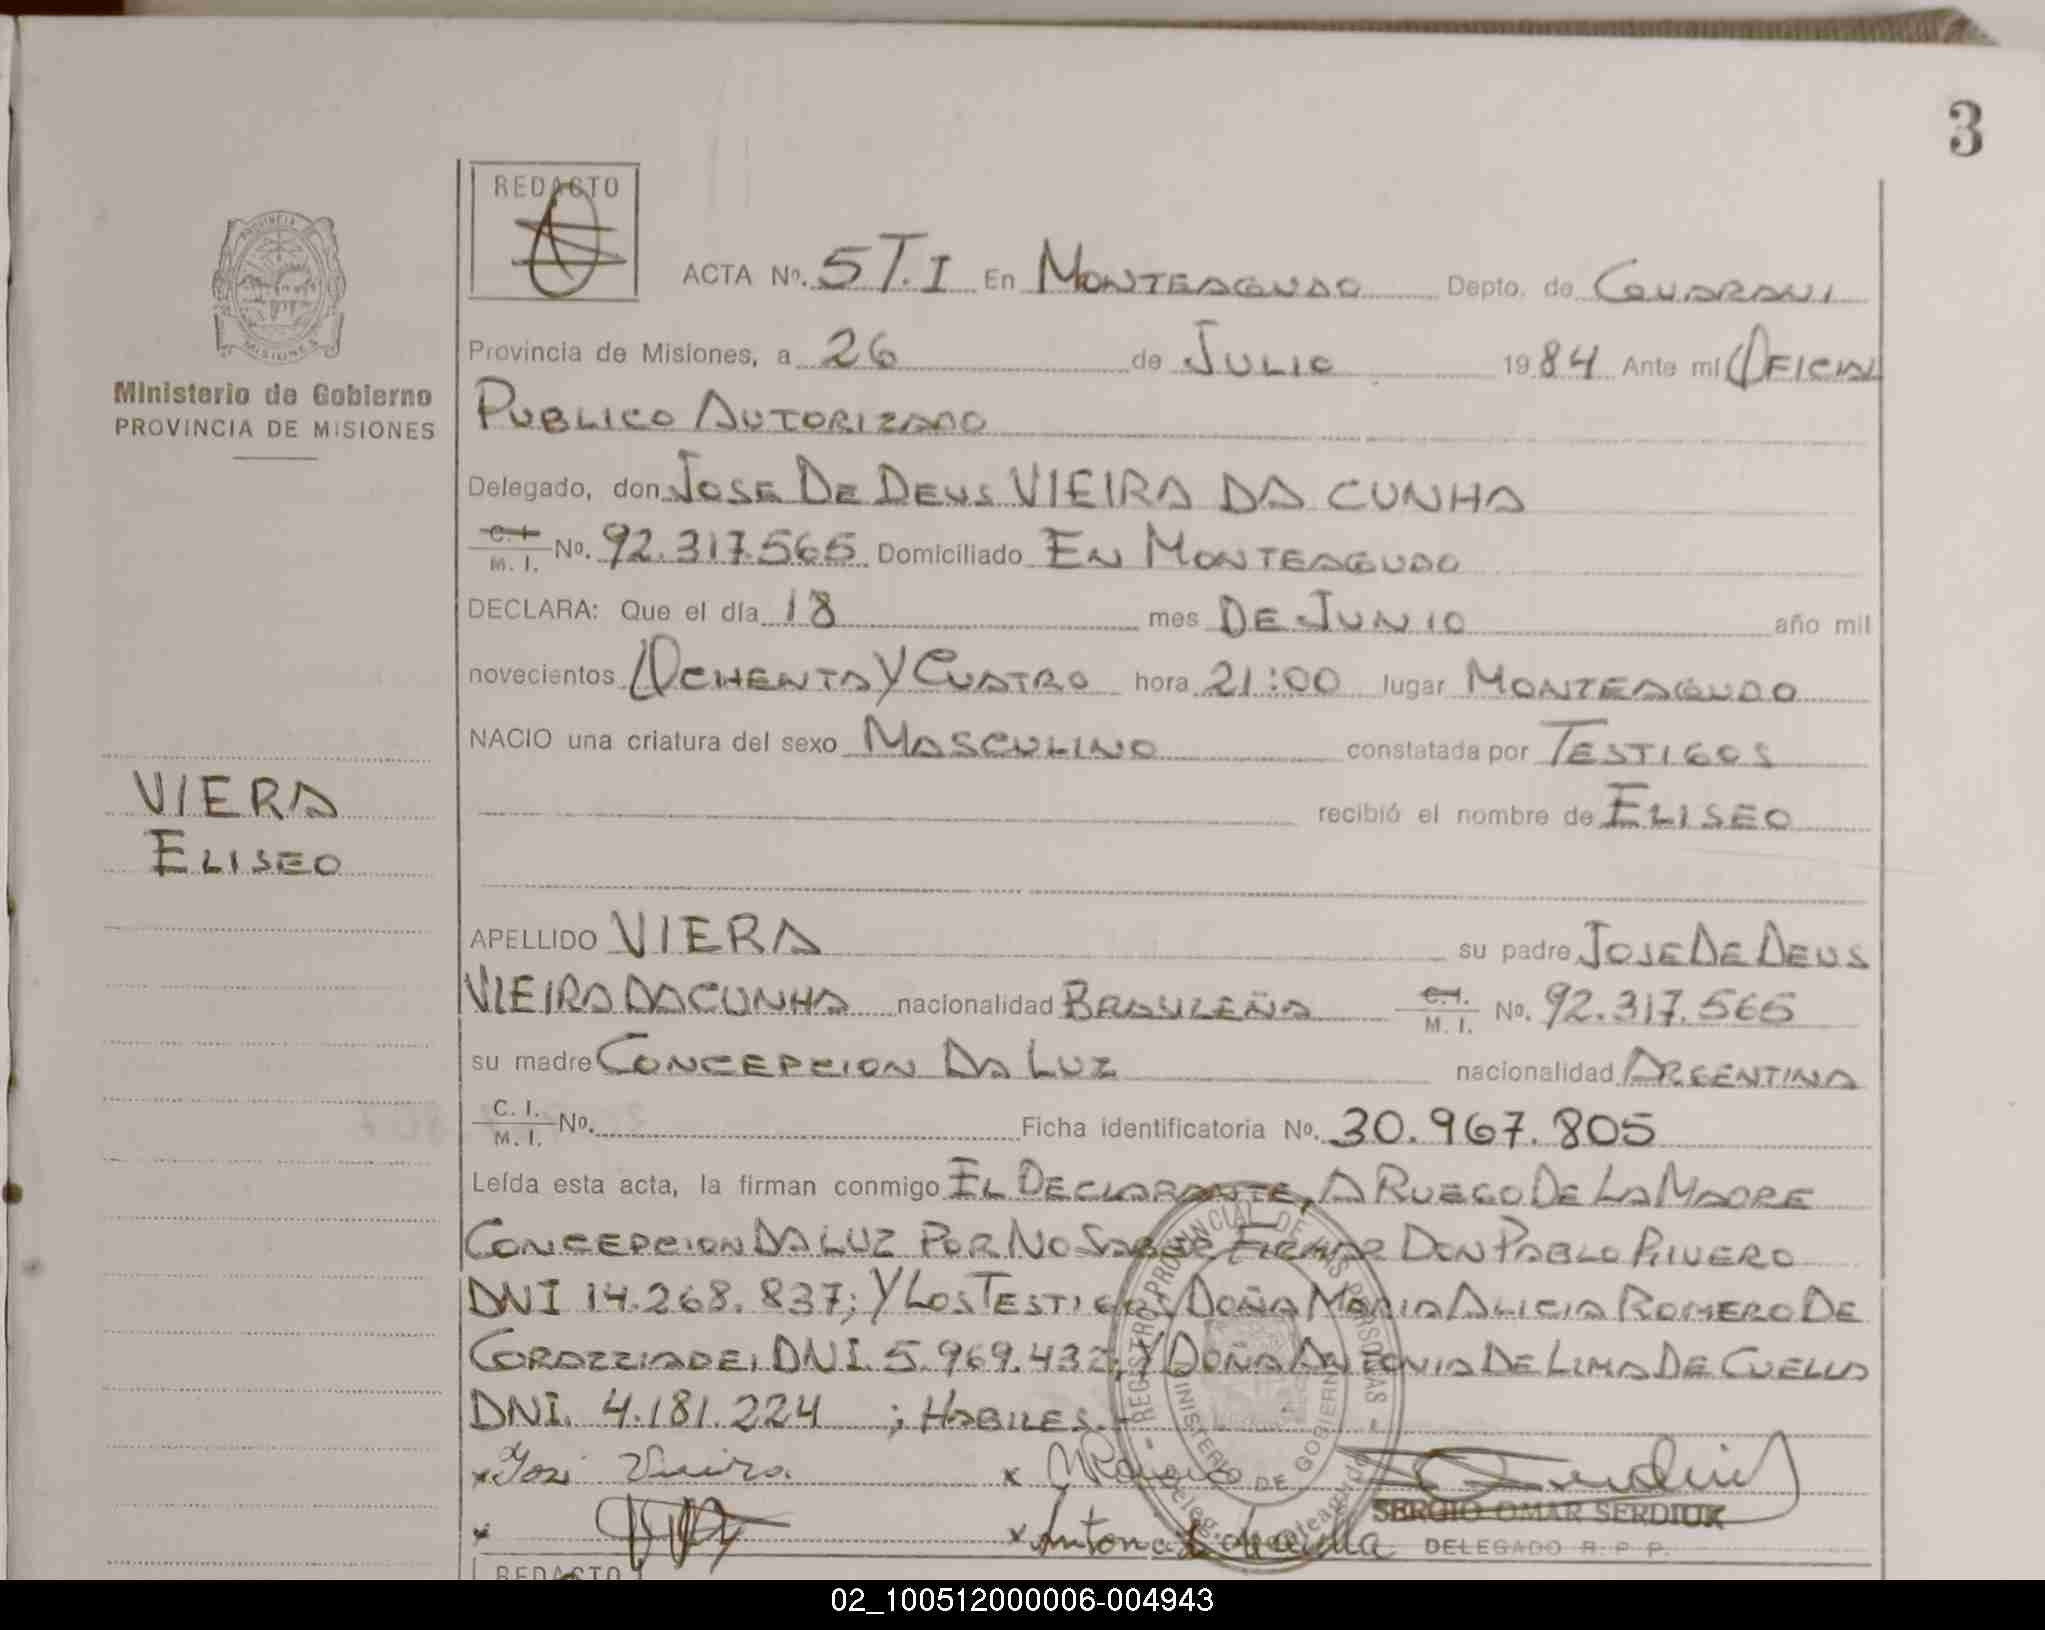 3
REDACTO
PROVINCIA DE MISIONES
Ministerio de Gobierno
PROVINCIA DE MISIONES
ACTA Nº. 5 T.I En MONTEAGUDO Depto. de GUARANI
Provincia de Misiones, a 26 de JULIO 1984 Ante mí OFICIAL
PUBLICO AUTORIZADO
Delegado, don JOSE DE DEUS VIEIRA DA CUNHA
C.I. M. I. Nº. 92.317.565 Domiciliado EN MONTEAGUDO
DECLARA: Que el día 18 mes DE JUNIO año mil
novecientos OCHENTA Y CUATRO hora 21:00 lugar MONTEAGUDO
NACIO una criatura del sexo MASCULINO constatada por TESTIGOS
recibió el nombre de ELISEO
VIERA
ELISEO
APELLIDO VIERA su padre JOSE DE DEUS
VIEIRA DA CUNHA nacionalidad BRASILEÑA C.I. M. I. Nº. 92.317.565
su madre CONCEPCION DA LUZ nacionalidad ARGENTINA
C. I. M. I. Nº. Ficha identificatoria Nº. 30.967.805
Leída esta acta, la firman conmigo EL DECLARANTE, A RUEGO DE LA MADRE
CONCEPCION DA LUZ POR NO SABER FIRMAR DON PABLO RIVERO
DNI 14.268.837; Y LOS TESTIGOS DOÑA MARIA ALICIA ROMERO DE
DNI. 5.969.432; Y DOÑA ANTONIA DE LIMA DE CUELLO
DNI. 4.181.224 ; HABILES.-
REGISTRO PROVINCIAL DE LAS PERSONAS
MINISTERIO DE GOBIERNO
Deleg. Monteagudo
x José Vieira x
SERGIO OMAR SERDIUK
x x Antonia
DELEGADO R. P. P.
REDACTO
02_100512000006-004943